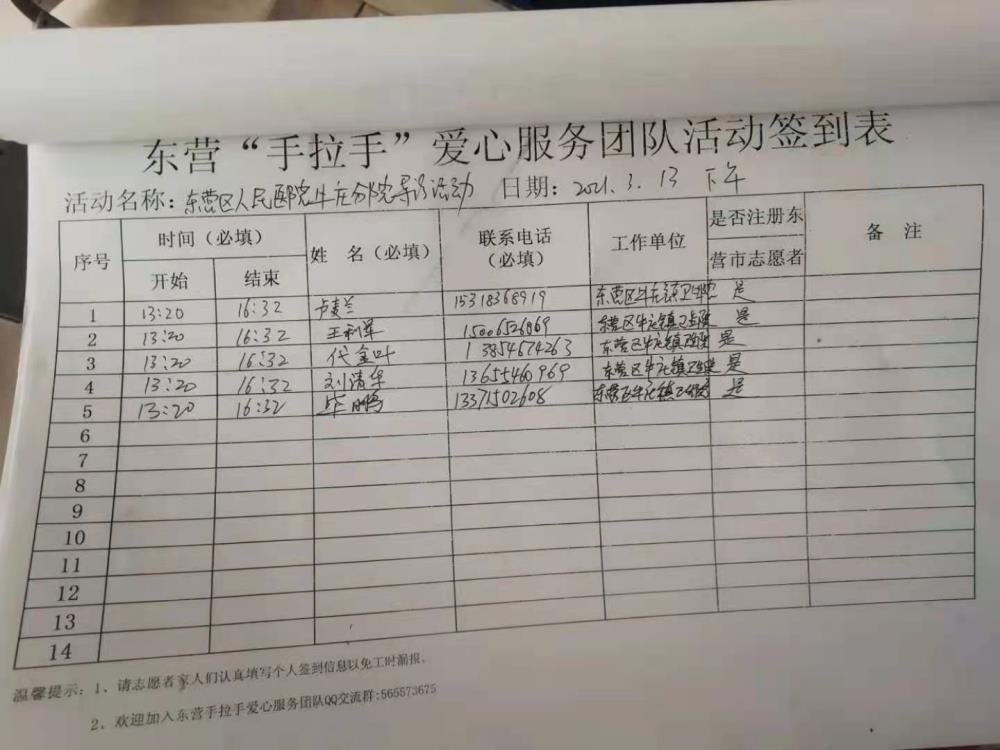 东营“手拉手”爱心服务团队活动签到表
活动名称：东营区人民医院牛庄分院导诊活动 日期：2021.3.13 下午
序号 时间（必填） 姓 名（必填） 联系电话（必填） 工作单位 是否注册东营市志愿者 备 注
开始 结束
1 13:20 16:32 卢麦兰 15318368919 东营区牛庄镇卫生院 是
2 13:20 16:32 王利军 15006526869 东营区牛庄镇卫生院 是
3 13:20 16:32 代金叶 13854674263 东营区牛庄镇卫生院 是
4 13:20 16:32 刘清华 13655460969 东营区牛庄镇卫生院 是
5 13:20 16:32 毕鹏 13371502608 东营区牛庄镇卫生院 是
6
7
8
9
10
11
12
13
14
温馨提示：1、请志愿者家人们认真填写个人签到信息以免工时漏报。
2、欢迎加入东营手拉手爱心服务团队QQ交流群:565573675